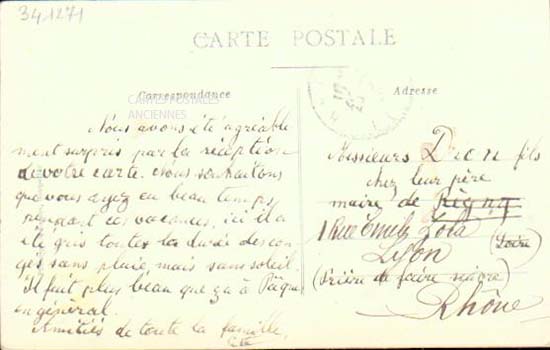 341271
CARTE POSTALE
Correspondance
Adresse
CARTES POSTALES
ANCIENNES
Nous avons été agréable
ment surpris par la réception
de votre carte. Nous souhaitons
que vous ayez eu beau temps
pendant ces vacances, ici il a
été gris toute la durée des con
gés, sans pluie mais sans soleil.
Il fait plus beau que ça à Pâques
en général.
Amitiés de toute la famille,
Messieurs Dron fils
chez leur père
maire de Régny
1 Rue Emile Zola
(Loire)
Lyon
(Prière de faire suivre)
Rhône